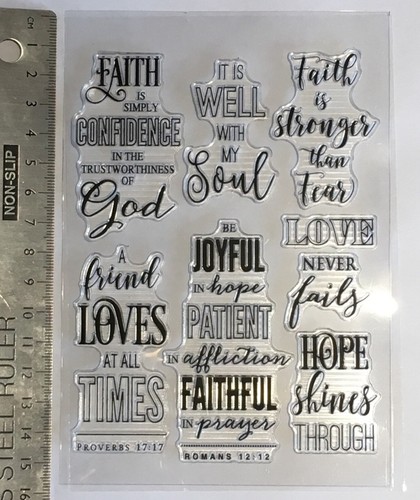 FAITH
IS
SIMPLY
CONFIDENCE
IN THE
TRUSTWORTHINESS
OF
God
IT IS
WELL
WITH
MY
Soul
Faith
is
stronger
than
Fear
LOVE
NEVER
fails
A
friend
LOVES
AT ALL
TIMES
PROVERBS 17:17
BE
JOYFUL
IN hope
PATIENT
IN affliction
FAITHFUL
IN prayer
ROMANS 12:12
HOPE
shines
THROUGH
CM
1
2
3
4
5
6
7
8
9
10
11
12
13
14
15
16
NON-SLIP
STEEL RULER